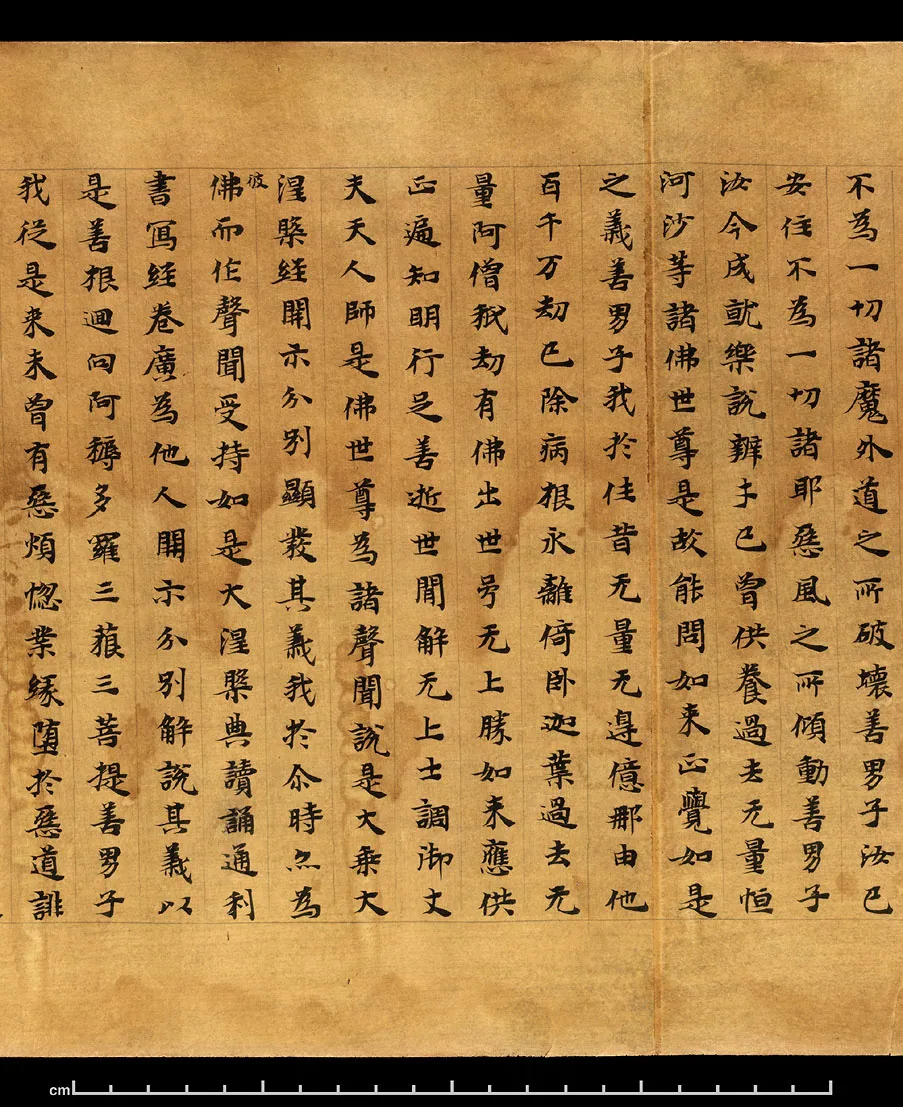 不為一切諸魔外道之所破壞善男子汝已
安住不為一切諸耶惡風之所傾動善男子
汝今成就樂說辯才已曾供養過去无量恒
河沙等諸佛世尊是故能問如来正覺如是
之義善男子我於往昔无量无邊億那由他
百千万劫已除病根永離倚卧迦葉過去无
量阿僧祇劫有佛出世号无上勝如来應供
正遍知明行足善逝世間解无上士調御丈
夫天人師是佛世尊為諸聲聞說是大乘大
涅槃經開示分别顯發其義我於尒時亦為
彼
佛而作聲聞受持如是大涅槃典讀誦通利
書寫經卷廣為他人開示分别解說其義以
是善根迴向阿耨多羅三藐三菩提善男子
我從是来未曾有惡煩惱業緣墮於惡道誹
cm